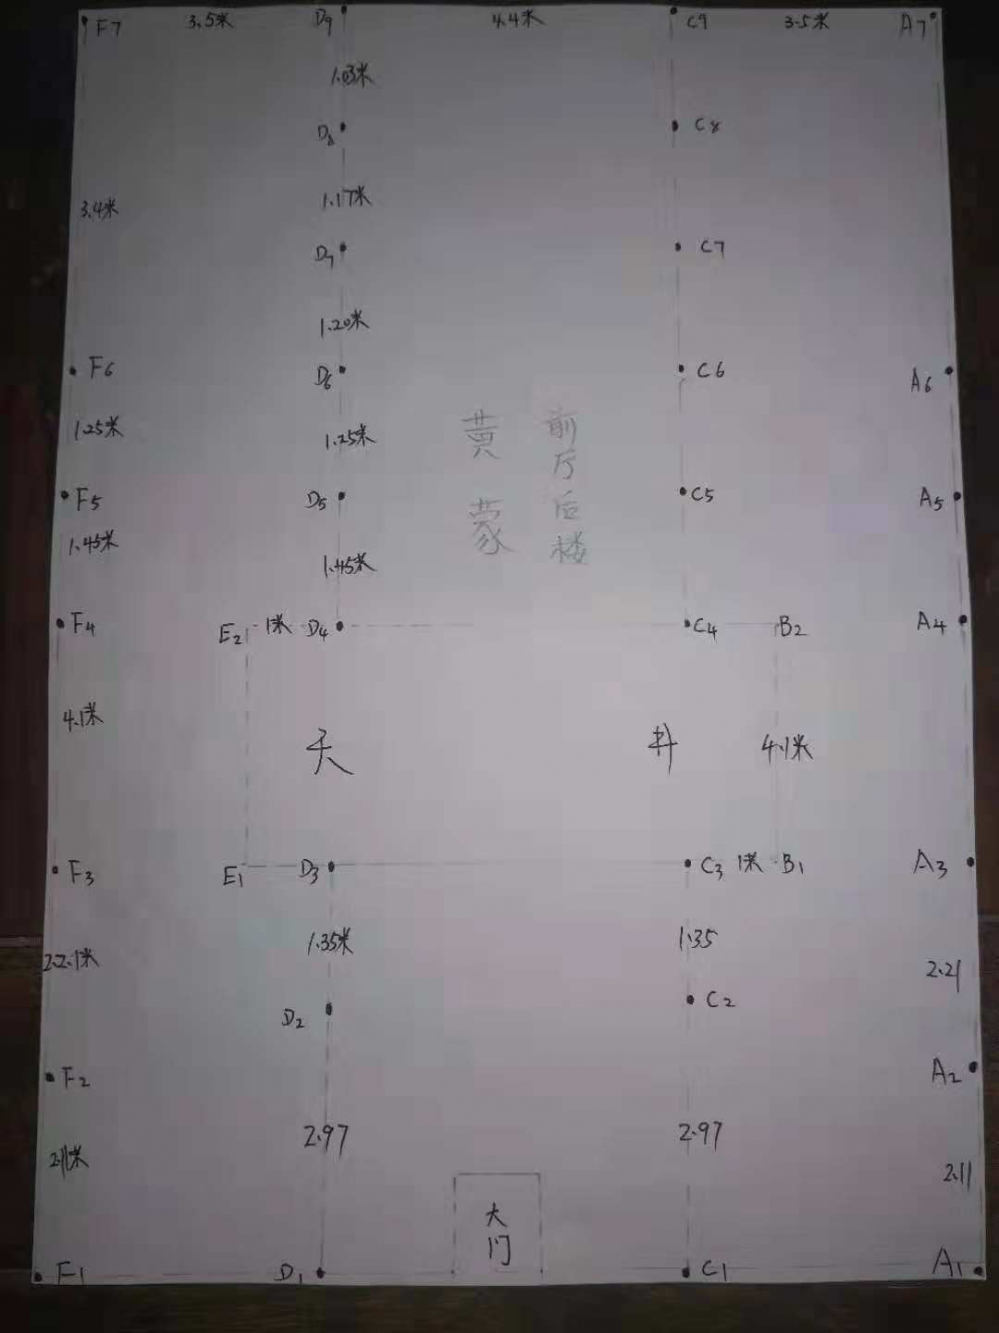 F7 3.5米 D9 4.4米 C9 3.5米 A7
1.03米
D8 C8
3.4米 1.17米
D7 C7
1.20米
F6 D6 C6 A6
1.25米 1.25米
黄蒙
前厅后楼
F5 D5 C5 A5
1.45米 1.45米
F4 E2 1米 D4 C4 B2 A4
4.1米 天 井 4.1米
F3 E1 D3 C3 1米 B1 A3
2.21米 1.35米 1.35 2.21
D2 C2
F2 A2
2.11米 2.97 2.97 2.11
大门
F1 D1 C1 A1